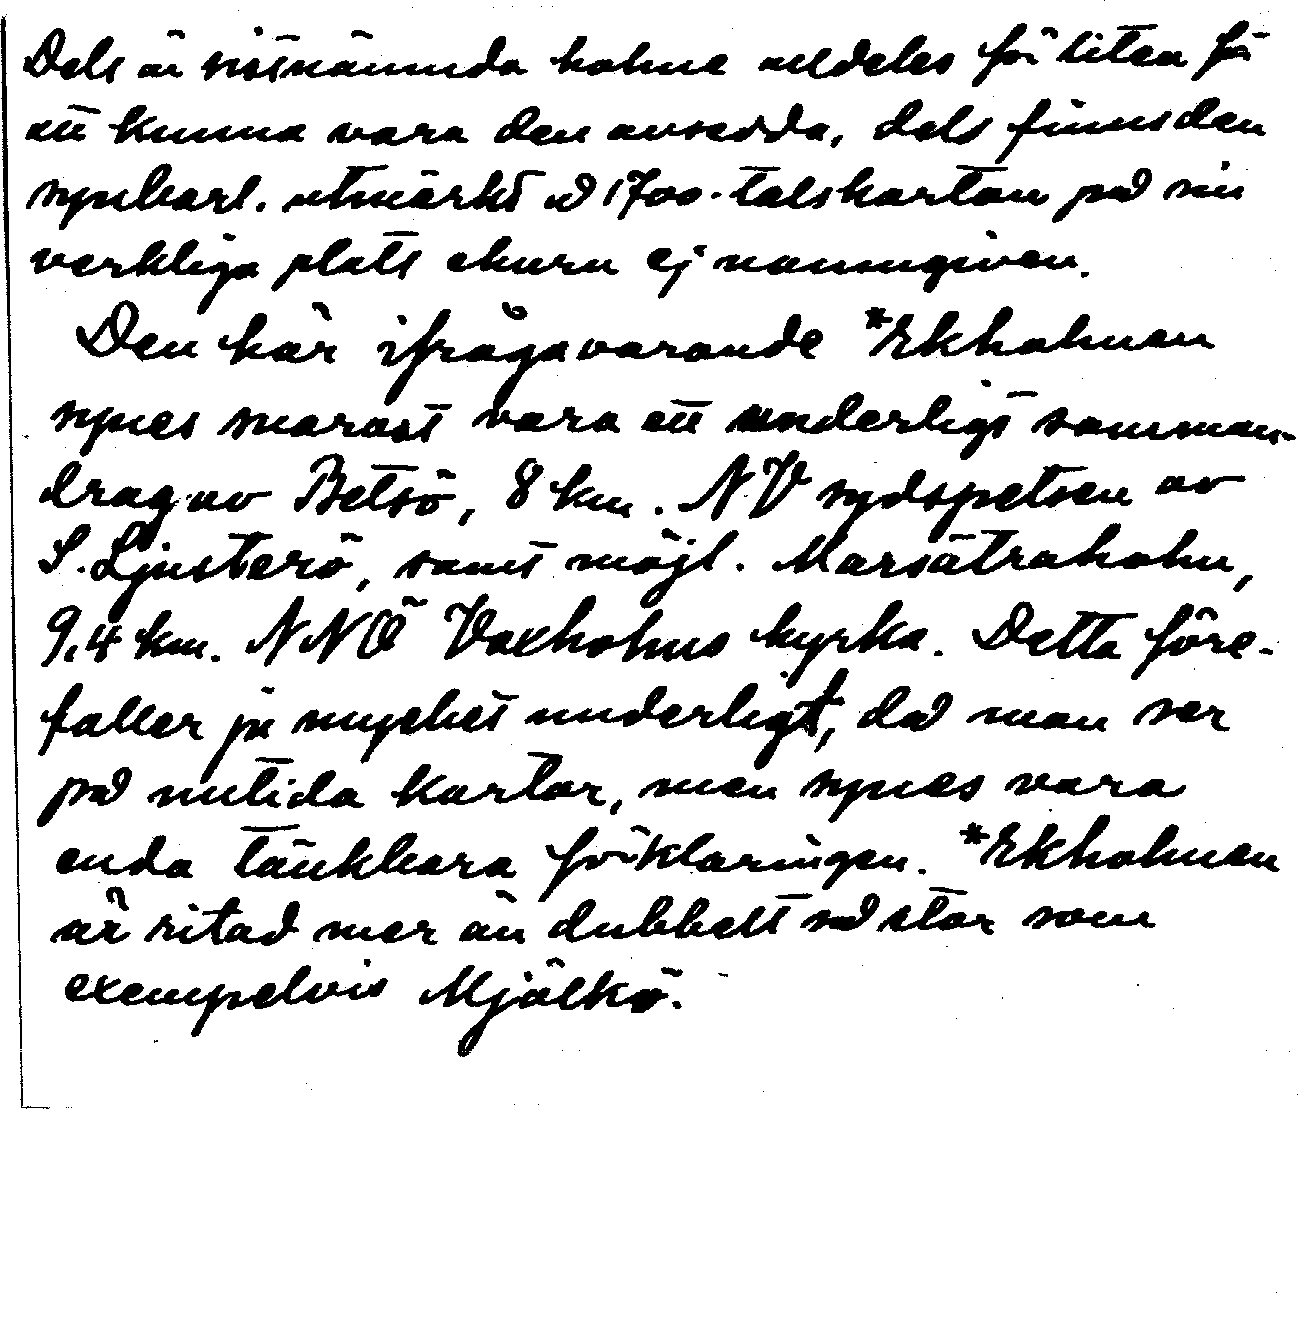 Dels är sistnämnda holme alldeles för liten för
att kunna vara den avsedda, dels finns den
synbarl. utmärkt å 1700-talskartan på sin
verkliga plats ehuru ej namngiven.
Den här ifrågavarande *Ekholmen
synes snarast vara ett underligt samman-
drag av Betsö, 8 km. NV sydspetsen av
S. Ljusterö, samt möjl. Marsätraholm,
9,4 km. NNÖ Vaxholms kyrka. Detta före-
faller ju mycket underligt, då man ser
på nutida kartor, men synes vara
enda tänkbara förklaringen. *Ekholmen
är ritad mer än dubbelt så stor som
exempelvis Mjölkö.